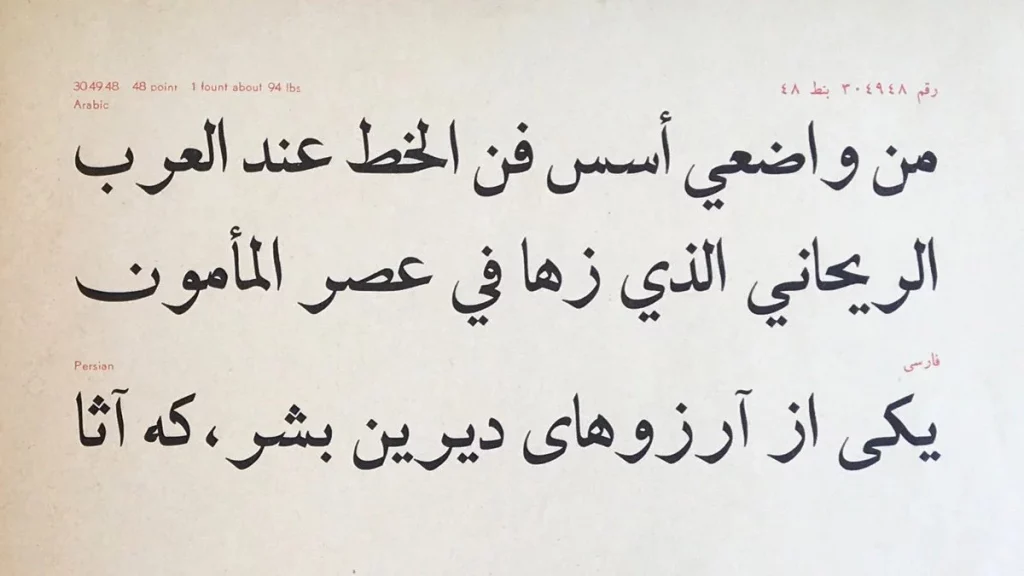 304948 48 point 1 fount about 94 lbs.
رقم ٣٠٤٩٤٨ بنط ٤٨
Arabic
من واضعي أسس فن الخط عند العرب
الريحاني الذي زها في عصر المأمون
Persian
فارسی
یکی از آرزوهای دیرین بشر، که آثا